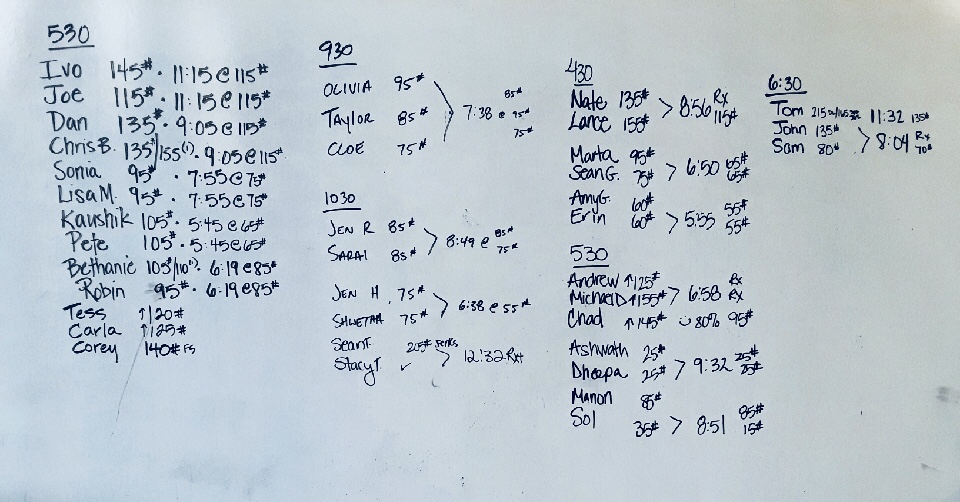 530
Ivo 145# · 11:15 @ 115#
Joe 115# · 11:15 @ 115#
Dan 135# · 9:05 @ 115#
Chris B. 135#/155(1) · 9:05 @ 115#
Sonia 95# · 7:55 @ 75#
Lisa M. 95# · 7:55 @ 75#
Kaushik 105# · 5:45 @ 65#
Pete 105# · 5:45 @ 65#
Bethanie 105#/110(1) · 6:19 @ 85#
Robin 95# · 6:19 @ 85#
Tess ↑120#
Carla ↑125#
Corey 140# FS
930
OLIVIA 95#
TAYLOR 85# > 7:38 @ 85# 95# 75#
CLOE 75#
1030
JEN R 85#
SARAI 85# > 8:49 @ 85# 75#
JEN H. 75#
SHWETHA 75# > 6:38 @ 55#
Sean T. 205# Jerks
Stacy T. ✓ > 12:32 Rx+
430
Nate 135#
Lance 155# > 8:56 Rx 115#
Marta 95#
Sean G. 75# > 6:50 65# 65#
Amy G. 60#
Erin 60# > 5:55 55# 55#
530
Andrew ↑125# Rx
Michael D ↑155# > 6:58 Rx
Chad ↑145# 80% 95#
Ashwath 25#
Dheepa 25# > 9:32 25# 25#
Manon 85#
Sol 35# > 8:51 85# 15#
6:30
Tom 11:32 135#
John 135#
Sam 80# > 8:04 Rx 70#